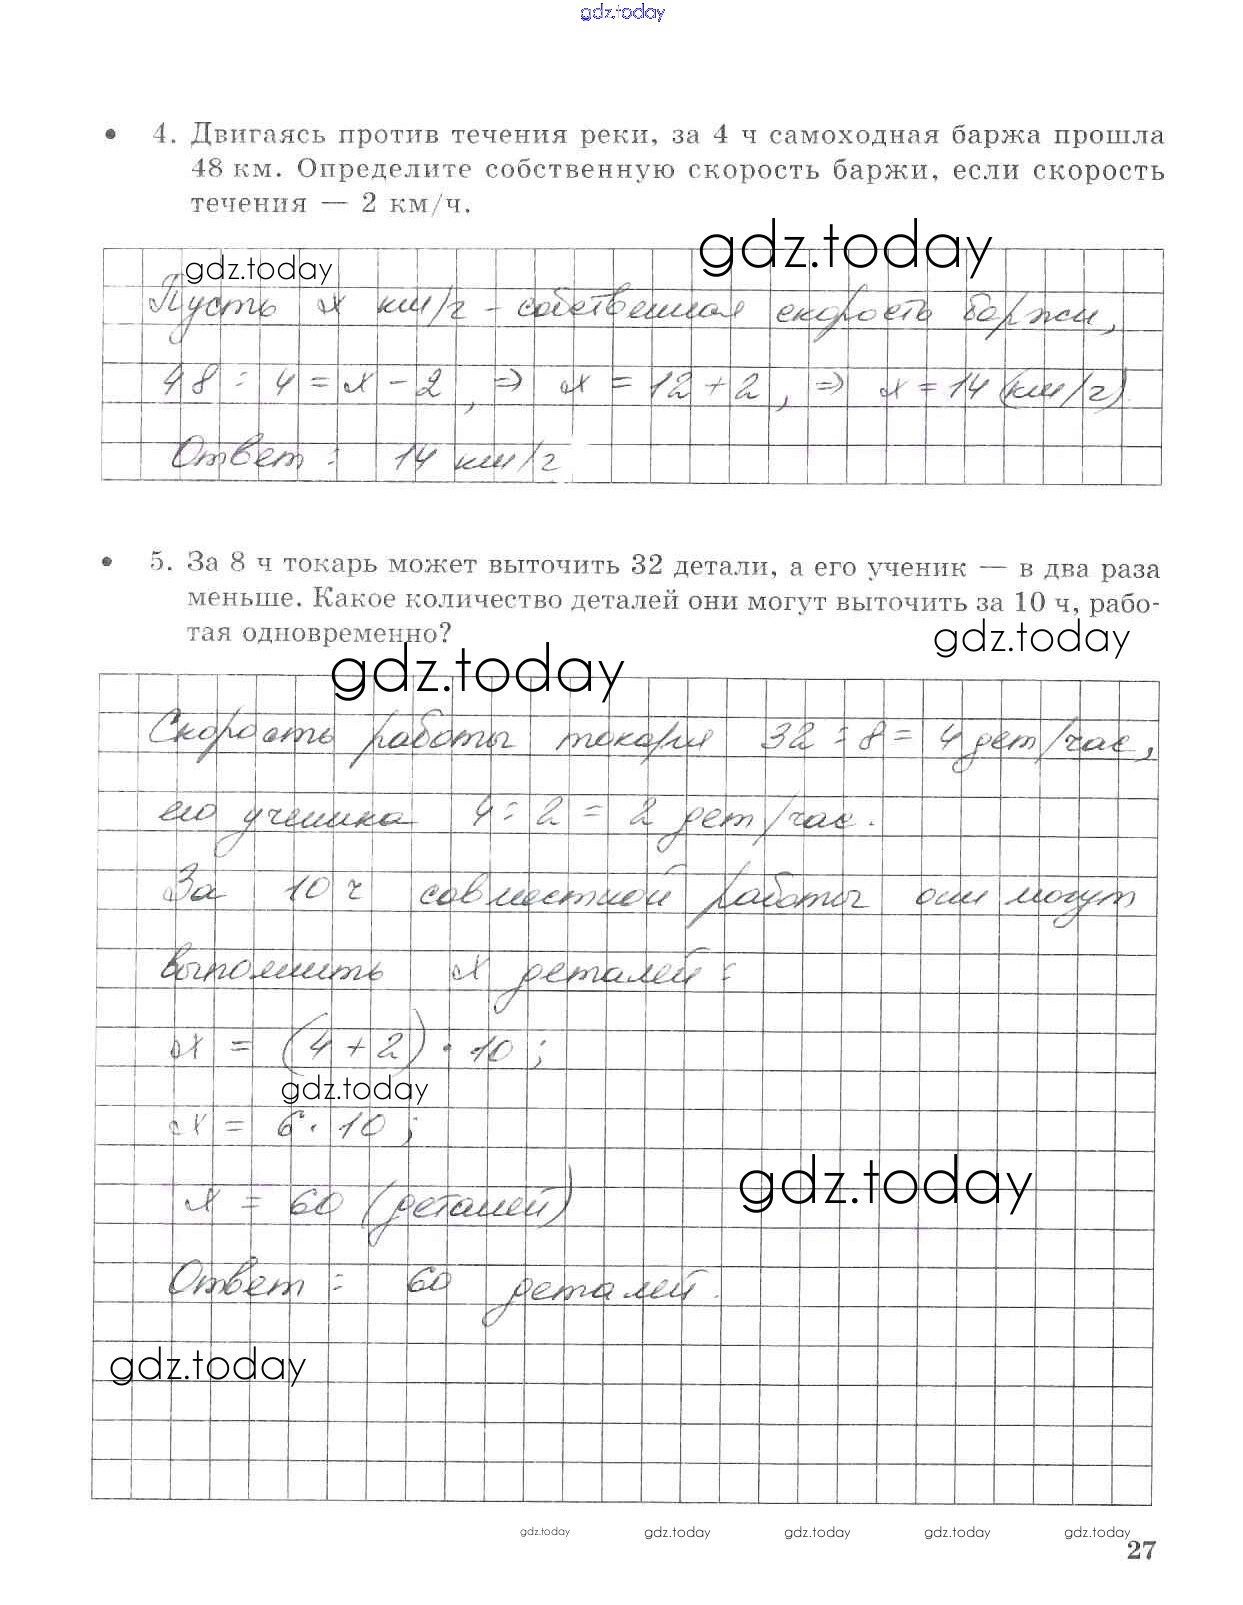 gdz.today
• 4. Двигаясь против течения реки, за 4 ч самоходная баржа прошла
48 км. Определите собственную скорость баржи, если скорость
течения — 2 км/ч.
gdz.today
gdz.today
Пусть x км/ч - собственная скорость баржи,
48 : 4 = x - 2, ⇒ x = 12 + 2, ⇒ x = 14 (км/ч)
Ответ: 14 км/ч
• 5. За 8 ч токарь может выточить 32 детали, а его ученик — в два раза
меньше. Какое количество деталей они могут выточить за 10 ч, рабо-
тая одновременно?
gdz.today
gdz.today
Скорость работы токаря 32 : 8 = 4 дет/час,
его ученика 4 : 2 = 2 дет/час.
За 10 ч совместной работы они могут
выполнить x деталей:
x = (4 + 2) · 10;
gdz.today
x = 6 · 10;
gdz.today
x = 60 (деталей)
Ответ: 60 деталей.
gdz.today
gdz.today gdz.today gdz.today gdz.today gdz.today
27